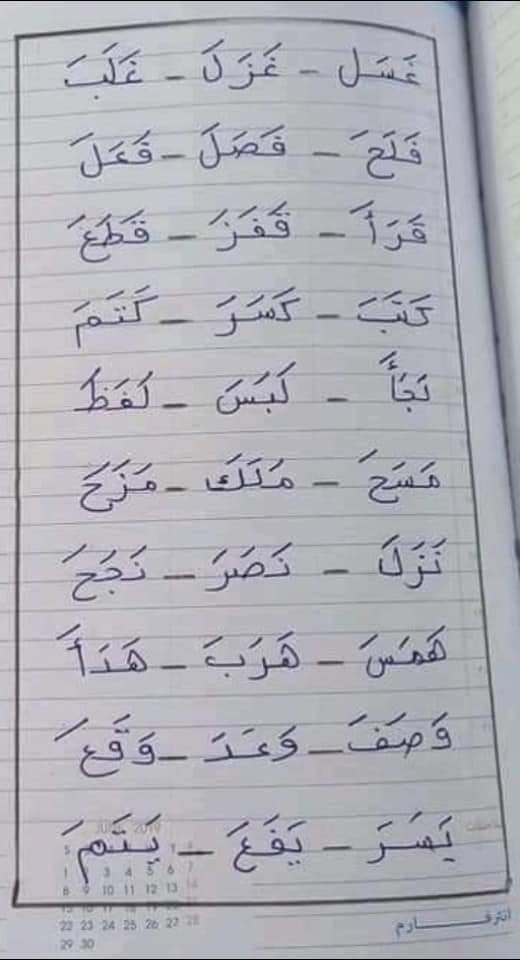 غَسَل – غَزَلَ – غَلَبَ
فَلَحَ – فَصَلَ – فَعَلَ
قَرَأَ – قَفَزَ – قَطَعَ
كَتَبَ – كَسَرَ – كَتَمَ
لَجَأَ – لَبَسَ – لَفَظَ
مَسَحَ – مَلَكَ – مَزَحَ
نَزَلَ – نَصَرَ – نَجَحَ
هَمَسَ – هَرَبَ – هَدَأَ
وَصَفَ – وَعَدَ – وَقَعَ
يَسَرَ – يَفَعَ – يَتَمَ
2019
3 4 5 6
8 9 10 11 12 13
22 23 24 25 26 27 28
29 30
انترفارم